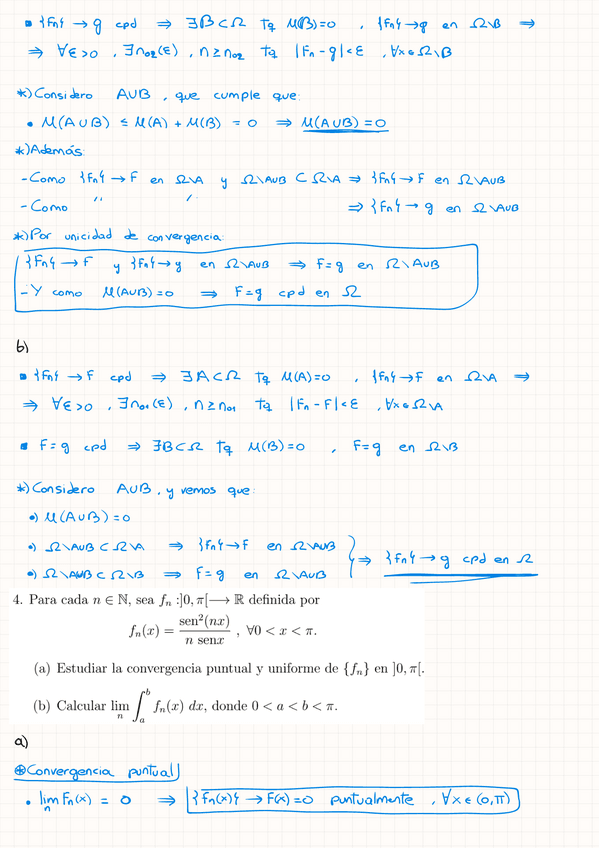 ▪ {Fn} → g cpd ⇒ ∃B⊂Ω Tq M(B)=0 , {Fn}→g en Ω\B ⇒
⇒ ∀ε>0 , ∃n₀₂(ε) , n≥n₀₂ Tq |Fn-g|<ε , ∀x∈Ω\B
*) Considero A∪B , que cumple que:
• M(A∪B) ≤ M(A) + M(B) = 0 ⇒ M(A∪B)=0
*) Además:
- Como {Fn}→F en Ω\A y Ω\A∪B ⊂ Ω\A ⇒ {Fn}→F en Ω\A∪B
- Como '' '' ⇒ {Fn}→g en Ω\A∪B
*) Por unicidad de convergencia:
{Fn}→F y {Fn}→g en Ω\A∪B ⇒ F=g en Ω\A∪B
- Y como M(A∪B)=0 ⇒ F=g cpd en Ω
b)
▪ {Fn}→F cpd ⇒ ∃A⊂Ω Tq M(A)=0 , {Fn}→F en Ω\A ⇒
⇒ ∀ε>0 , ∃n₀₁(ε) , n≥n₀₁ Tq |Fn-F|<ε , ∀x∈Ω\A
▪ F=g cpd ⇒ ∃B⊂Ω Tq M(B)=0 , F=g en Ω\B
*) Considero A∪B, y vemos que:
•) M(A∪B)=0
•) Ω\A∪B ⊂ Ω\A ⇒ {Fn}→F en Ω\A∪B
•) Ω\A∪B ⊂ Ω\B ⇒ F=g en Ω\A∪B } ⇒ {Fn}→g cpd en Ω
4. Para cada n ∈ ℕ, sea fₙ :]0, π[⟶ ℝ definida por
fₙ(x) = sen²(nx) / (n senx) , ∀0 < x < π.
(a) Estudiar la convergencia puntual y uniforme de {fₙ} en ]0, π[.
(b) Calcular lim_n ∫_a^b fₙ(x) dx, donde 0 < a < b < π.
a)
⊛ Convergencia puntual
• lim_n Fn(x) = 0 ⇒ {Fn(x)} → F(x)=0 puntualmente , ∀x∈(0,π)